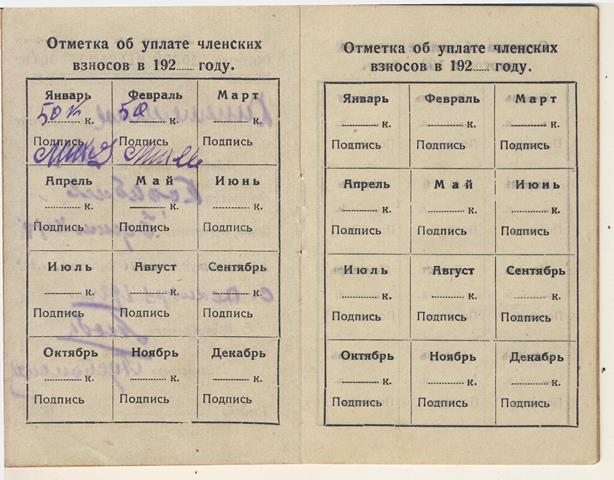 Отметка об уплате членских
взносов в 192...... году.
Январь Февраль Март
50 к к. 50 к. ............ к.
Подпись Подпись Подпись
Апрель Май Июнь
............ к. ............ к. ............ к.
Подпись Подпись Подпись
Июль Август Сентябрь
............ к. ............ к. ............ к.
Подпись Подпись Подпись
Октябрь Ноябрь Декабрь
............ к. ............ к. ............ к.
Подпись Подпись Подпись
Отметка об уплате членских
взносов в 192...... году.
Январь Февраль Март
............ к. ............ к. ............ к.
Подпись Подпись Подпись
Апрель Май Июнь
............ к. ............ к. ............ к.
Подпись Подпись Подпись
Июль Август Сентябрь
............ к. ............ к. ............ к.
Подпись Подпись Подпись
Октябрь Ноябрь Декабрь
............ к. ............ к. ............ к.
Подпись Подпись Подпись